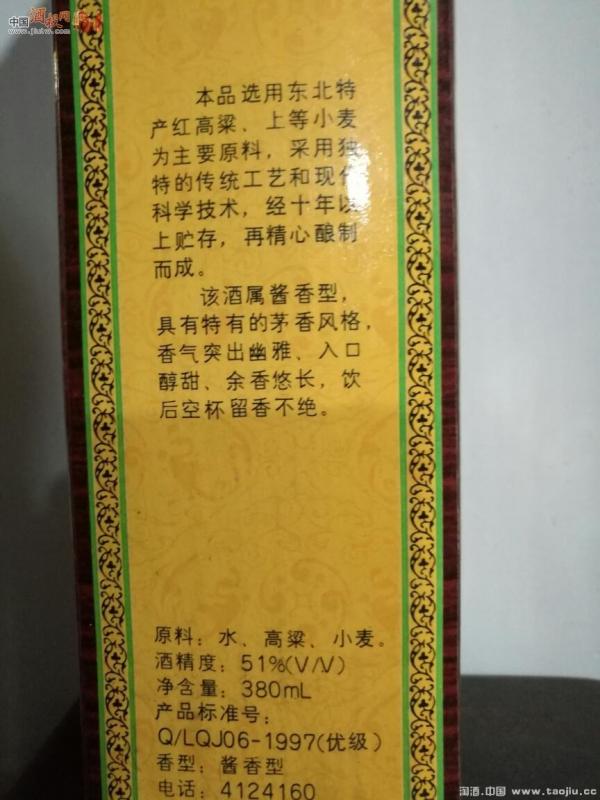 中国酒投网
www.jiutw.com
本品选用东北特
产红高粱、上等小麦
为主要原料，采用独
特的传统工艺和现代
科学技术，经十年以
上贮存，再精心酿制
而成。
该酒属酱香型，
具有特有的茅香风格，
香气突出幽雅、入口
醇甜、余香悠长，饮
后空杯留香不绝。
原料：水、高粱、小麦。
酒精度：51%(V/V)
净含量：380mL
产品标准号：
Q/LQJ06-1997(优级)
香型：酱香型
电话：4124160
淘酒.中国 www.taojiu.cc